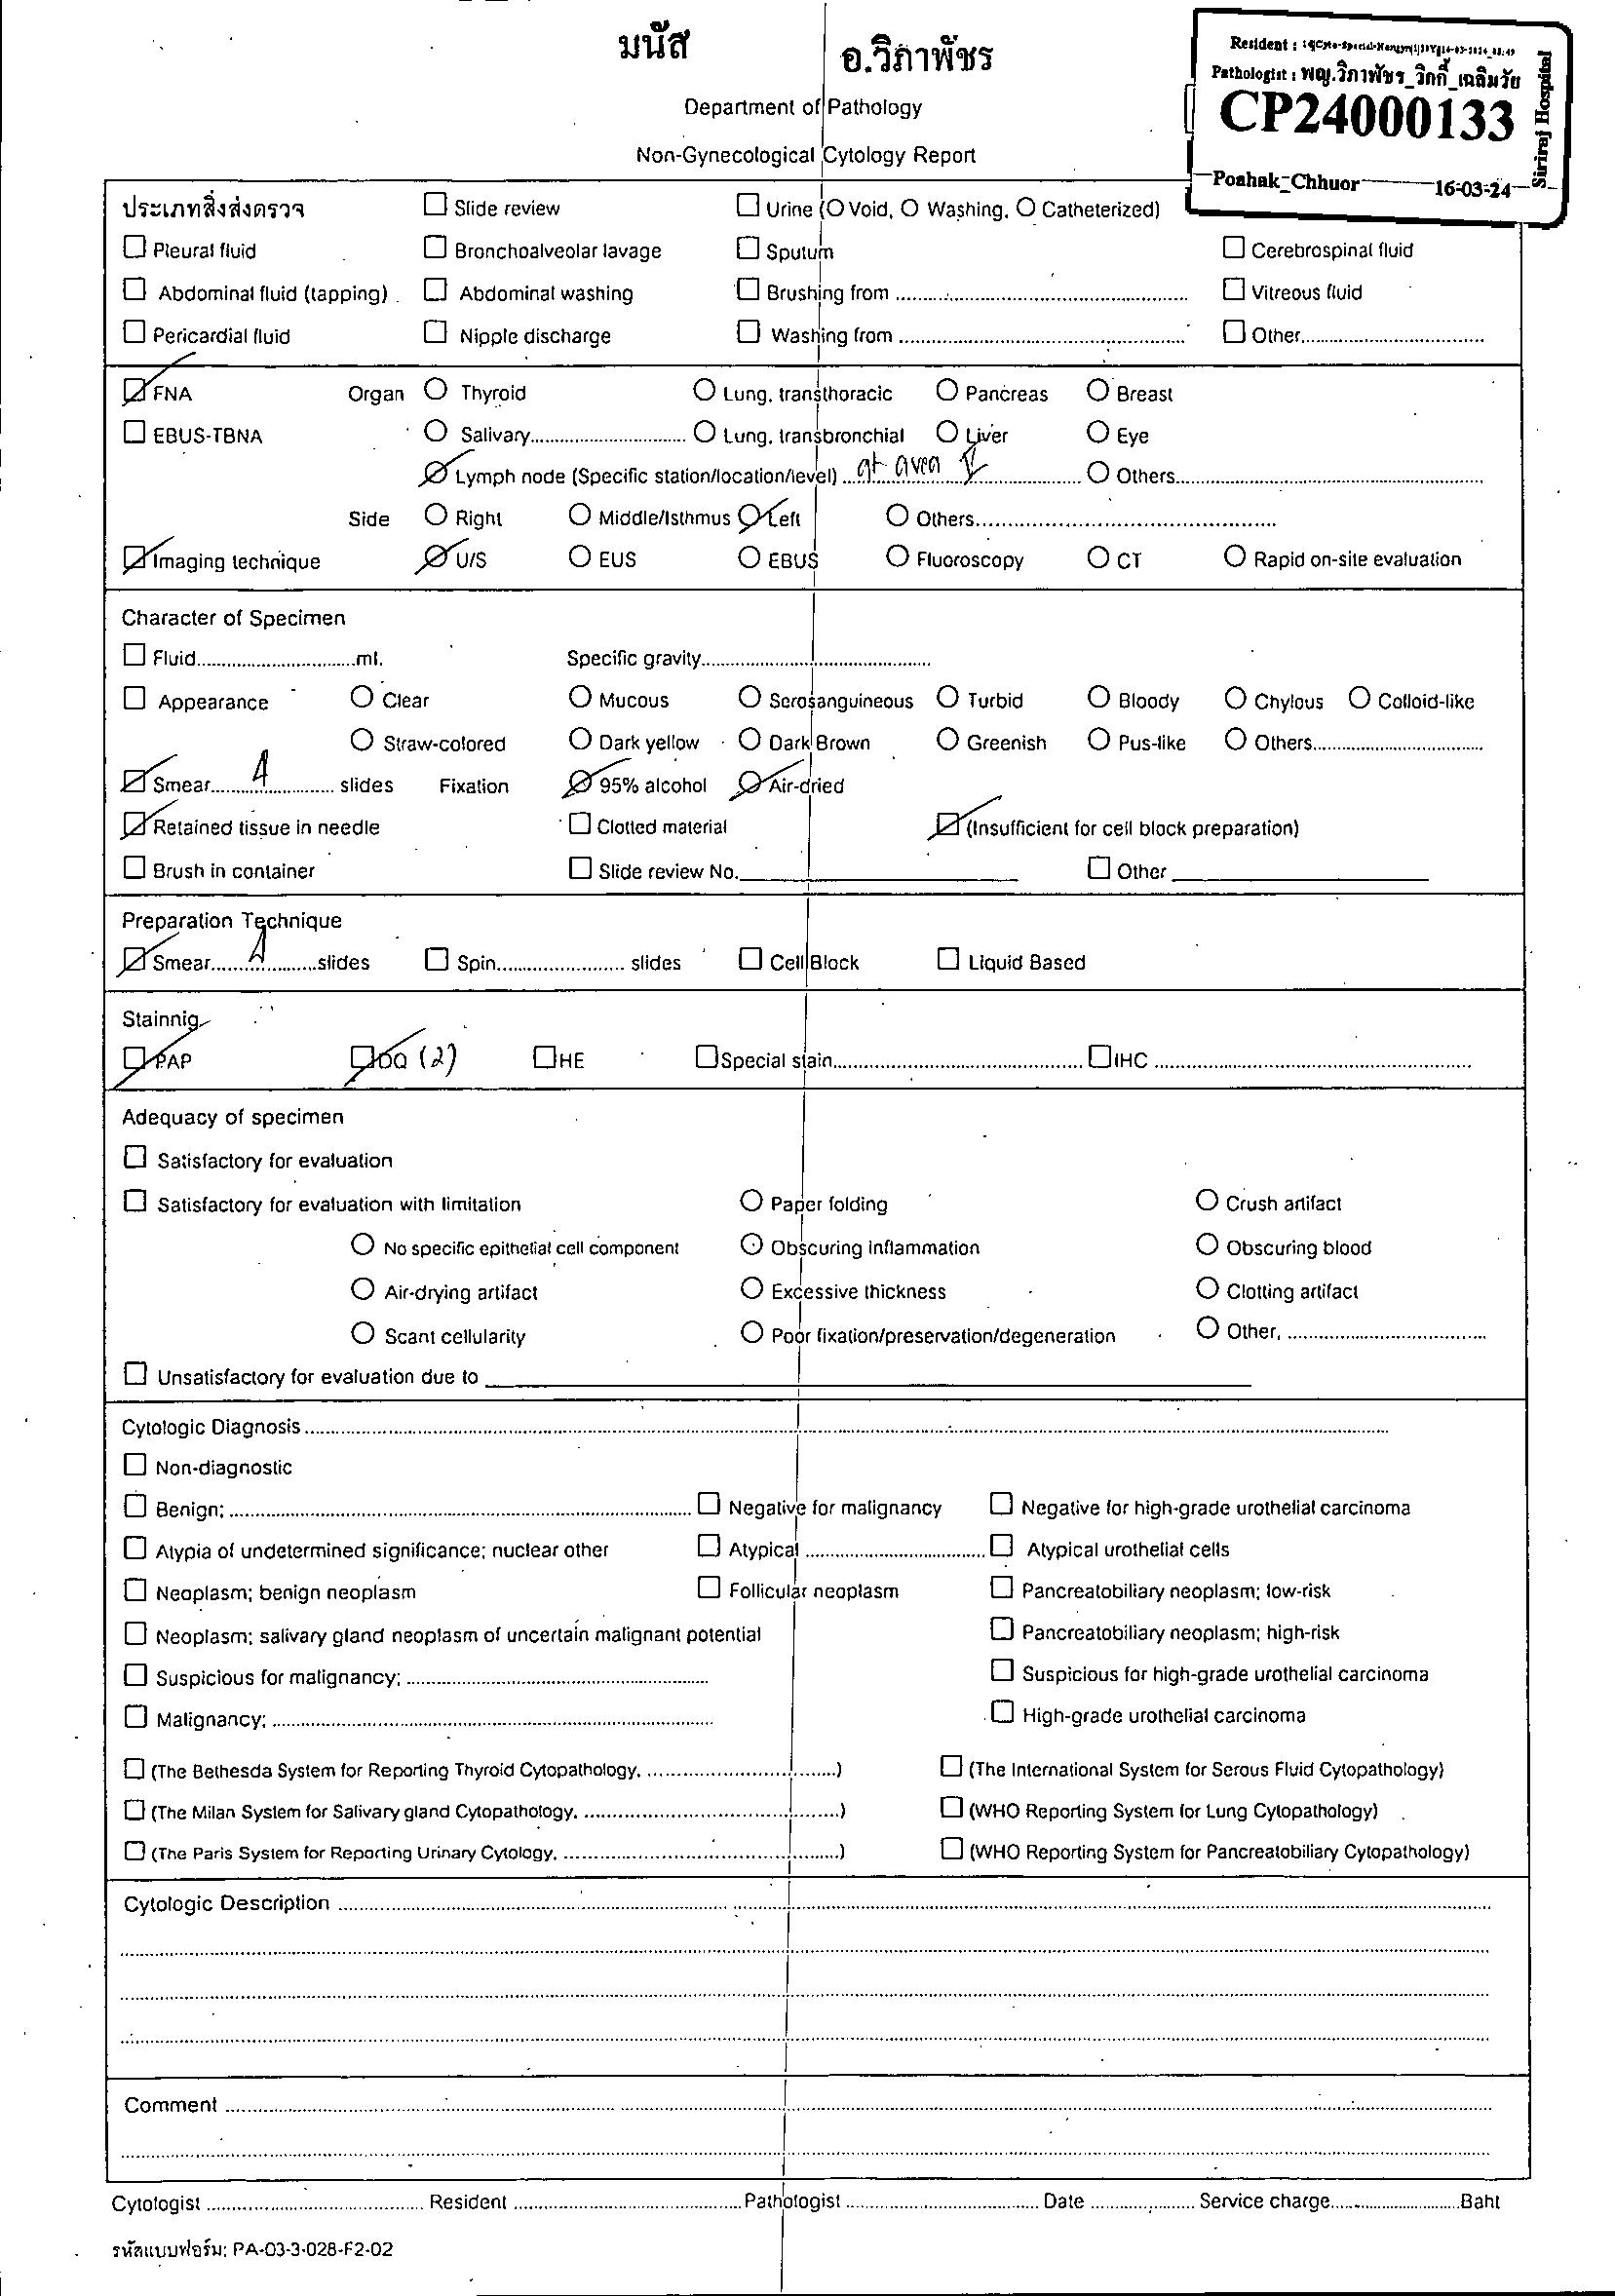 มนัส อ.วิภาพัชร
Department of Pathology
Non-Gynecological Cytology Report
Resident :
Pathologist : พญ.วิภาพัชร_วิกกี้_เฉลิมวัย
CP24000133
Poahak_Chhuor 16-03-24
Siriraj Hospital
ประเภทสิ่งส่งตรวจ ☐ Slide review ☐ Urine (O Void, O Washing, O Catheterized)
☐ Pleural fluid ☐ Bronchoalveolar lavage ☐ Sputum ☐ Cerebrospinal fluid
☐ Abdominal fluid (tapping) ☐ Abdominal washing ☐ Brushing from .......... ☐ Vitreous fluid
☐ Pericardial fluid ☐ Nipple discharge ☐ Washing from .......... ☐ Other..........
☑ FNA Organ O Thyroid O Lung, transthoracic O Pancreas O Breast
☐ EBUS-TBNA O Salivary.......... O Lung, transbronchial O Liver O Eye
Ø Lymph node (Specific station/location/level) at area V O Others..........
Side O Right O Middle/Isthmus Ø Left O Others..........
☑ Imaging technique Ø U/S O EUS O EBUS O Fluoroscopy O CT O Rapid on-site evaluation
Character of Specimen
☐ Fluid..........ml. Specific gravity..........
☐ Appearance O Clear O Mucous O Serosanguineous O Turbid O Bloody O Chylous O Colloid-like
O Straw-colored O Dark yellow O Dark Brown O Greenish O Pus-like O Others..........
☑ Smear....4.... slides Fixation Ø 95% alcohol Ø Air-dried
☑ Retained tissue in needle ☐ Clotted material ☑ (Insufficient for cell block preparation)
☐ Brush in container ☐ Slide review No.__________ ☐ Other __________
Preparation Technique
☑ Smear....4....slides ☐ Spin.......... slides ☐ Cell Block ☐ Liquid Based
Stainnig
☑ PAP ☑ DQ (2) ☐ HE ☐ Special stain.......... ☐ IHC ..........
Adequacy of specimen
☐ Satisfactory for evaluation
☐ Satisfactory for evaluation with limitation O Paper folding O Crush artifact
O No specific epithelial cell component O Obscuring inflammation O Obscuring blood
O Air-drying artifact O Excessive thickness O Clotting artifact
O Scant cellularity O Poor fixation/preservation/degeneration O Other, ..........
☐ Unsatisfactory for evaluation due to __________
Cytologic Diagnosis ..........
☐ Non-diagnostic
☐ Benign; .......... ☐ Negative for malignancy ☐ Negative for high-grade urothelial carcinoma
☐ Atypia of undetermined significance; nuclear other ☐ Atypical .......... ☐ Atypical urothelial cells
☐ Neoplasm; benign neoplasm ☐ Follicular neoplasm ☐ Pancreatobiliary neoplasm; low-risk
☐ Neoplasm; salivary gland neoplasm of uncertain malignant potential ☐ Pancreatobiliary neoplasm; high-risk
☐ Suspicious for malignancy; .......... ☐ Suspicious for high-grade urothelial carcinoma
☐ Malignancy; .......... ☐ High-grade urothelial carcinoma
☐ (The Bethesda System for Reporting Thyroid Cytopathology, ..........) ☐ (The International System for Serous Fluid Cytopathology)
☐ (The Milan System for Salivary gland Cytopathology, ..........) ☐ (WHO Reporting System for Lung Cytopathology)
☐ (The Paris System for Reporting Urinary Cytology, ..........) ☐ (WHO Reporting System for Pancreatobiliary Cytopathology)
Cytologic Description ..........
Comment ..........
Cytologist .......... Resident .......... Pathologist .......... Date .......... Service charge..........Baht
รหัสแบบฟอร์ม; PA-03-3-028-F2-02